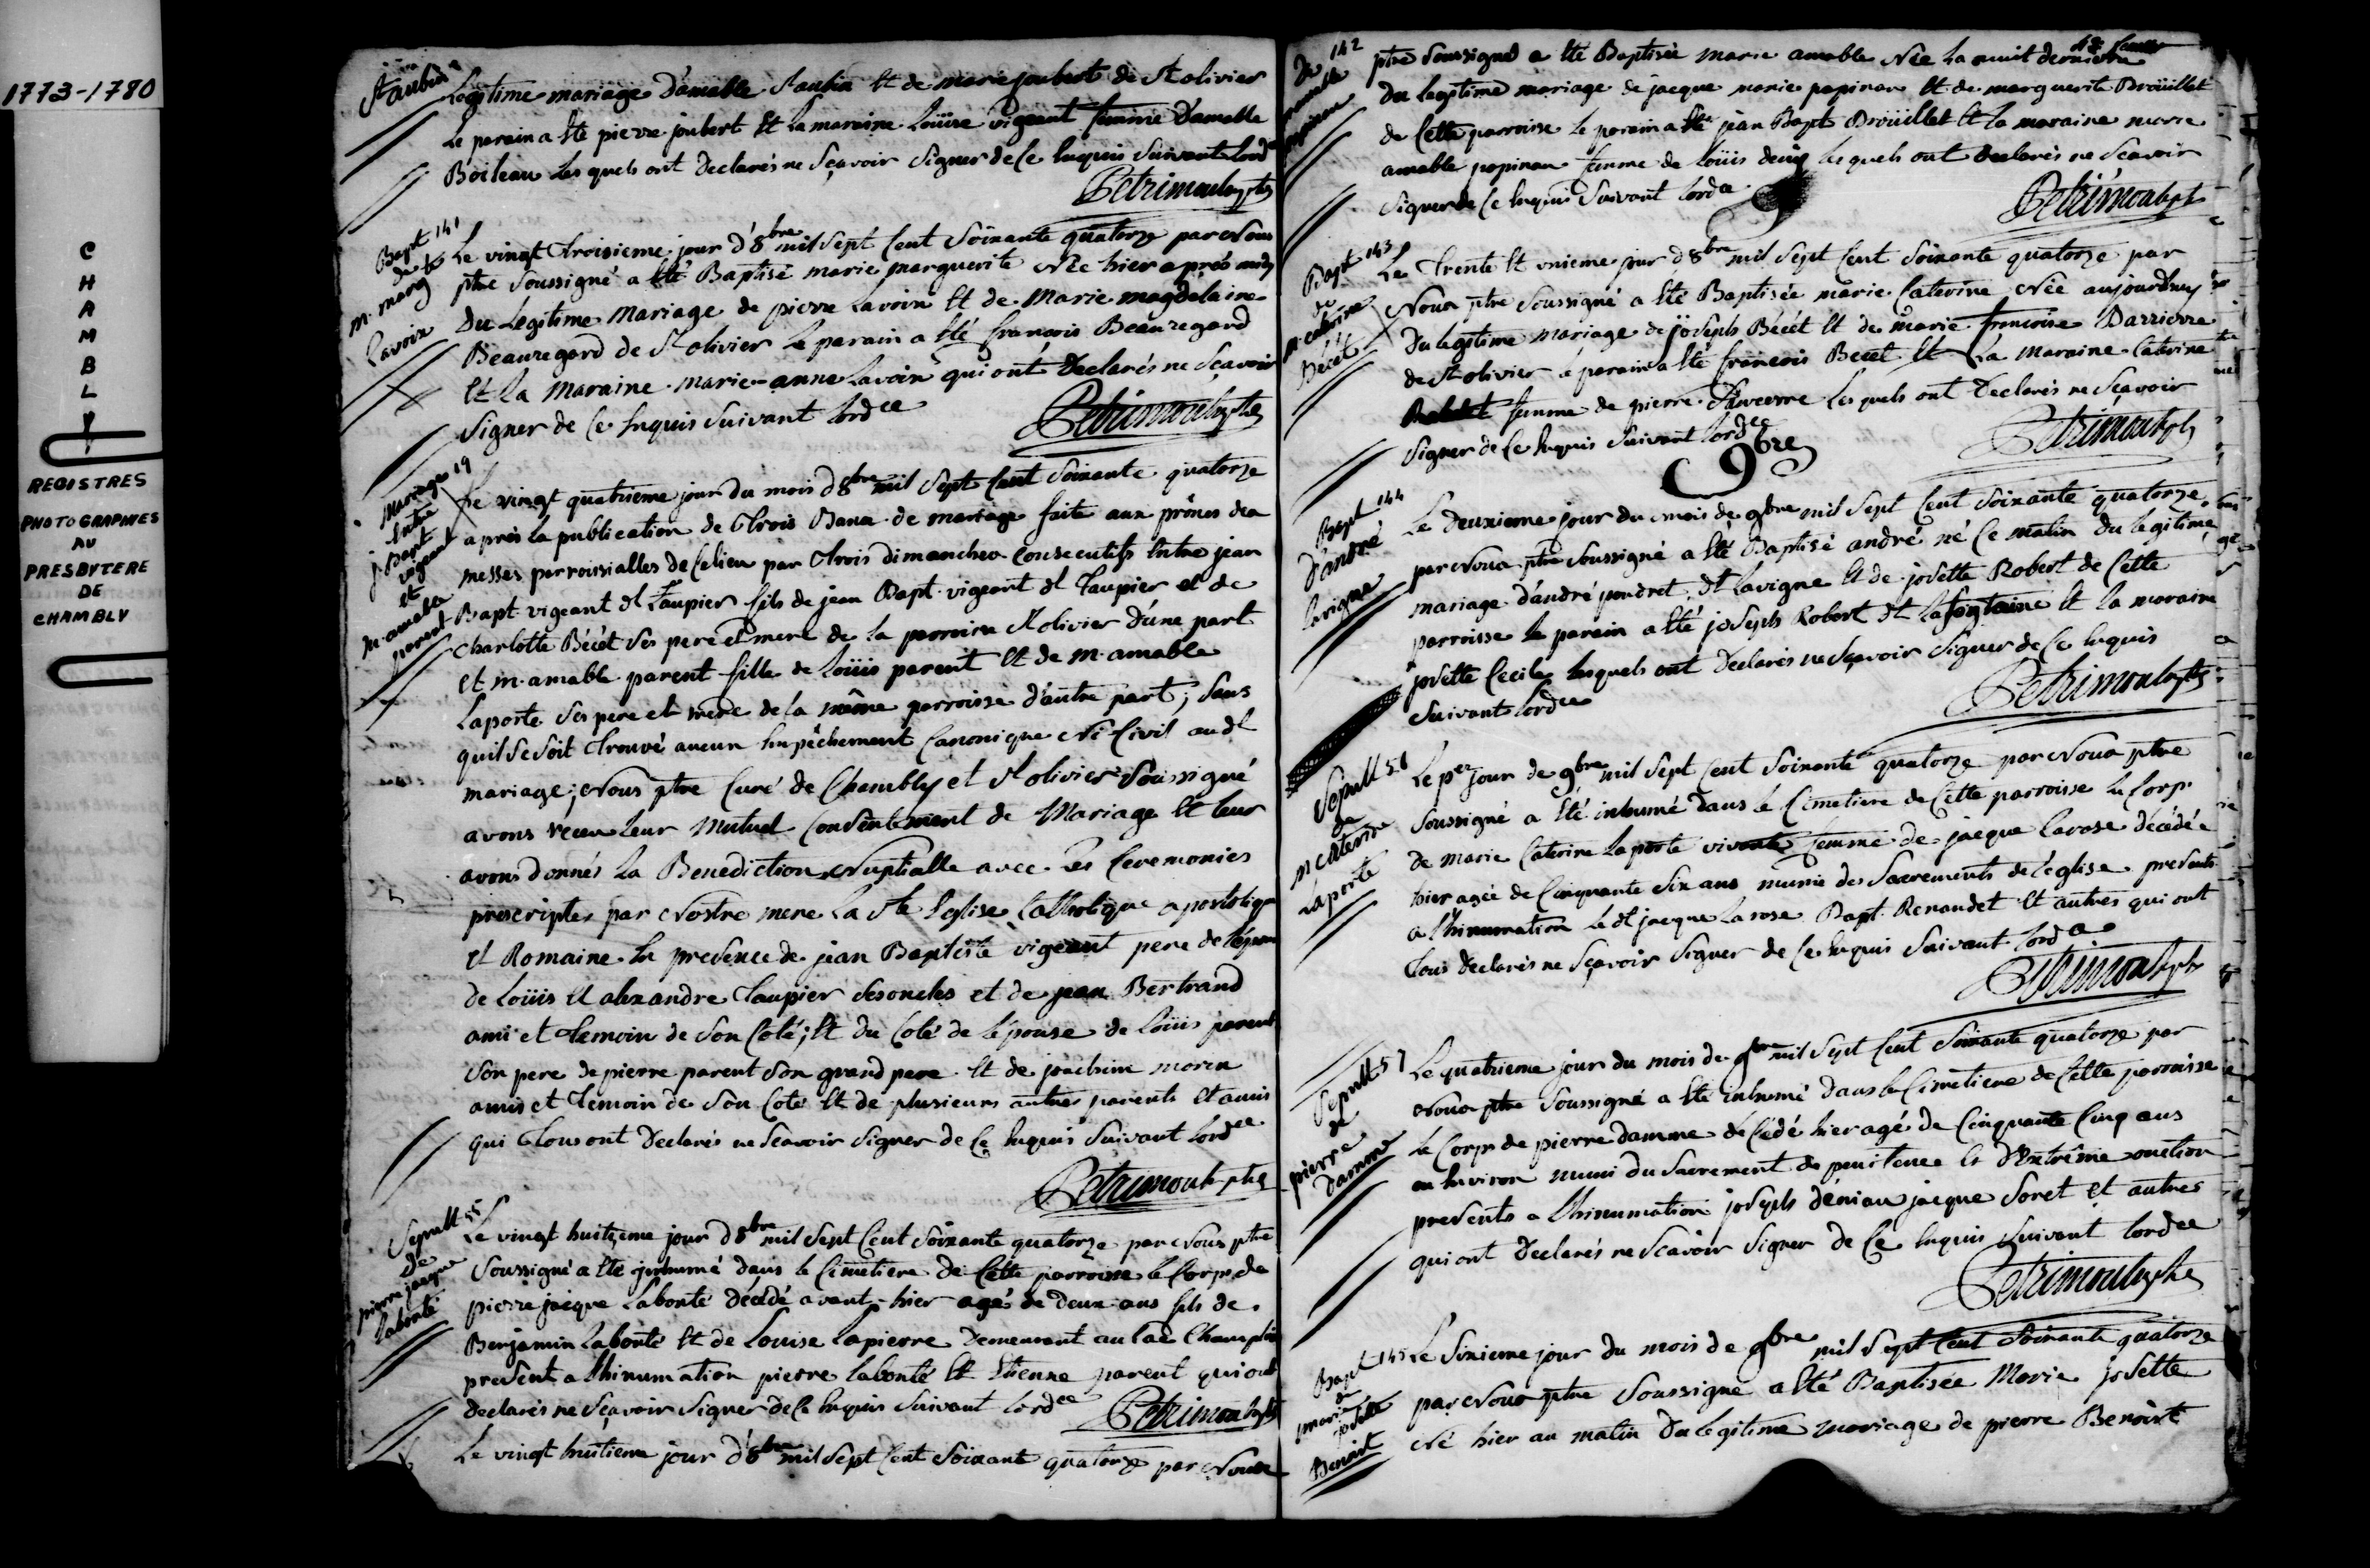 1773-1780
CHAMBLY
REGISTRES
PHOTOGRAPHIÉS
AU
PRESBYTERE
DE
CHAMBLY
St aubin
Legitime mariage d'amable St aubin Et de marie joubert de St olivier
Le parain a Eté pierre joubert Et La maraine Loüise vigeant femme D'amable
Boileau Lesquels ont Declarés ne Sçavoir Signer de Ce Enquis Suivant Lordce
Petrimoulx ptre
Bapt 141
de
m. marg te
Lavoix
Le vingt Troisieme jour d'8bre mil Sept Cent Soixante quatorze par Nous
ptre Soussigné a Eté Baptisé marie marguerite Née hier aprés midy
Du Légitime Mariage de pierre Lavoix Et de Marie magdelaine
Beauregard de St olivier Le parain a Eté francois Beauregard
Et La Maraine marie-anne Lavoix qui ont Declarés ne Sçavoir
Signer de Ce Enquis Suivant Lordce
Petrimoulx ptre
Mariage 19
Entre
j. Bapt
vigeant
et
m. amable
parent
Le vingt quatrieme jour du mois d8bre mil Sept Cent Soixante quatorze
aprés La publication de Trois Bans de mariage faite aux prônes des
messes parroissialles de Ce lieu par Trois dimanches Consecutifs Entre jean
Bapt vigeant dt Taupier fils de jean Bapt. vigeant dt Taupier et de
Charlotte Bécét Ses pere et mere de la parroisse St olivier D'une part
et m. amable parent fille de Loüis parent Et de m. amable
Laporte Ses pere et mere de la même parroisse d'autre part; Sans
quil Se Soit Trouvé aucun Empêchement Canonique Ni Civil audt
mariage; Nous ptre Curé de Chambly et St olivier Soussigné
avons réceu Leur Mutuel Consentement de Mariage Et leur
avons Donnés La Benediction Nuptialle avec Les Ceremonies
prescriptes par Nostre mere La Ste Eglise Catholique apostolique
et Romaine. En presence de jean Baptiste vigeant pere de l'époux
de Loüis Et alexandre Taupier Ses oncles et de jean Bertrand
ami et Temoin de Son Coté; Et du Coté de L'épouse de Loüis parent
Son pere de pierre parent Son grand pere Et de joachim morin
amis et Temoin de Son Coté Et de plusieurs autres parents Et amis
qui Tous ont Declarés ne Scavoir Signer de Ce Enquis Suivant Lordce
Petrimoulx ptre
Sepult 55
de
pierre jacque
Labonté
Le vingt huitieme jour d8bre mil Sept Cent Soixante quatorze par Nous ptre
Soussigné a Eté inhumé dans le Cimetiere de Cette parroisse le Corps de
pierre jacque Labonté décédé avant-hier agé de deux ans fils de
Benjamin Labonté Et de Louise Lapierre Demeurant au Lac Champlain
present a Lhinumation pierre Labonté Et Etienne parent qui ont
declarés ne Sçavoir Signer de Ce Enquis Suivant Lordce
Petrimoulx ptre
Le vingt huitieme jour d'8bre mil Sept Cent Soixante quatorze par Nous
142
de
amable
papineau
ptre Soussigné a Eté Baptisée marie amable Née La nuit derniere
Du legitime mariage de jacque marie papineau Et de marguerite Broüillet
de Cette parroisse Le parain a Eté jean Bapt Broüillet Et La maraine marie
amable papineau femme de Loüis denis Lesquels ont Declarés ne Scavoir
Signer de Ce Enquis Suivant Lordce
Petrimoulx pt
Bapt 143
de
m. caterine
Bécét
Le Trente Et unieme jour d8bre mil Sept Cent Soixante quatorze par
Nous ptre Soussigné a Eté Baptisée marie Caterine Née aujourdhuy
Du legitime mariage de joseph Bécét Et de marie francoise Darrierre
de St olivier le parain a Eté francois Becet Et La Maraine Caterine
femme de pierre Lesquels ont Declarés ne Scavoir
Signer de Ce Enquis Suivant Lordce
Petrimoulx pt
9bre
Bapt 144
D'andré
Lavigne
Le deuxieme jour du mois de 9bre mil Sept Cent Soixante quatorze
par Nous ptre Soussigné a Eté Baptisé andré né Ce matin du legitime
mariage d'andré poudret dt Lavigne Et de josette Robert de Cette
parroisse Le parain a Eté joseph Robert dt Lafontaine Et la maraine
josette Cecile Lesquels ont Declarés ne Sçavoir Signer de Ce Enquis
Suivant Lordce
Petrimoulx ptre
Sepult 56
de
m caterine
Laporte
Le per jour de 9bre mil Sept Cent Soixante quatorze par Nous ptre
Soussigné a Eté inhumé dans le Cimetiere de Cette parroisse Le Corps
De marie Caterine Laporte vivante femme de jacque Larose décédée
hier agée de Cinquante Six ans munie des Sacrements de L'église presents
a Lhinumation Ledt jacque Larose Bapt. Renaudet Et autres qui ont
Tous Declarés ne Sçavoir Signer de Ce Enquis Suivant Lordce
Petrimoulx pt
Sepult 57
de
pierre
Damme
Le quatrieme jour du mois de 9bre mil Sept Cent Soixante quatorze par
Nous ptre Soussigné a Eté inhumé dans le Cimetiere de Cette parroisse
Le Corps de pierre Damme décédé hier agé de Cinquante Cinq ans
ou Environ muni du Sacrement de penitence Et D'Extrême onction
presents a Lhinumation joseph déniau jacque Soret Et autres
qui ont Declarés ne Scavoir Signer de Ce Enquis Suivant Lordce
Petrimoulx ptre
Bapt 145
de
marie
josette
Benoist
Le Sixieme jour du mois de 9bre mil Sept Cent Soixante quatorze
par Nous ptre Soussigné a Eté Baptisée Marie josette
Né hier au matin Du legitime mariage de pierre Benoist